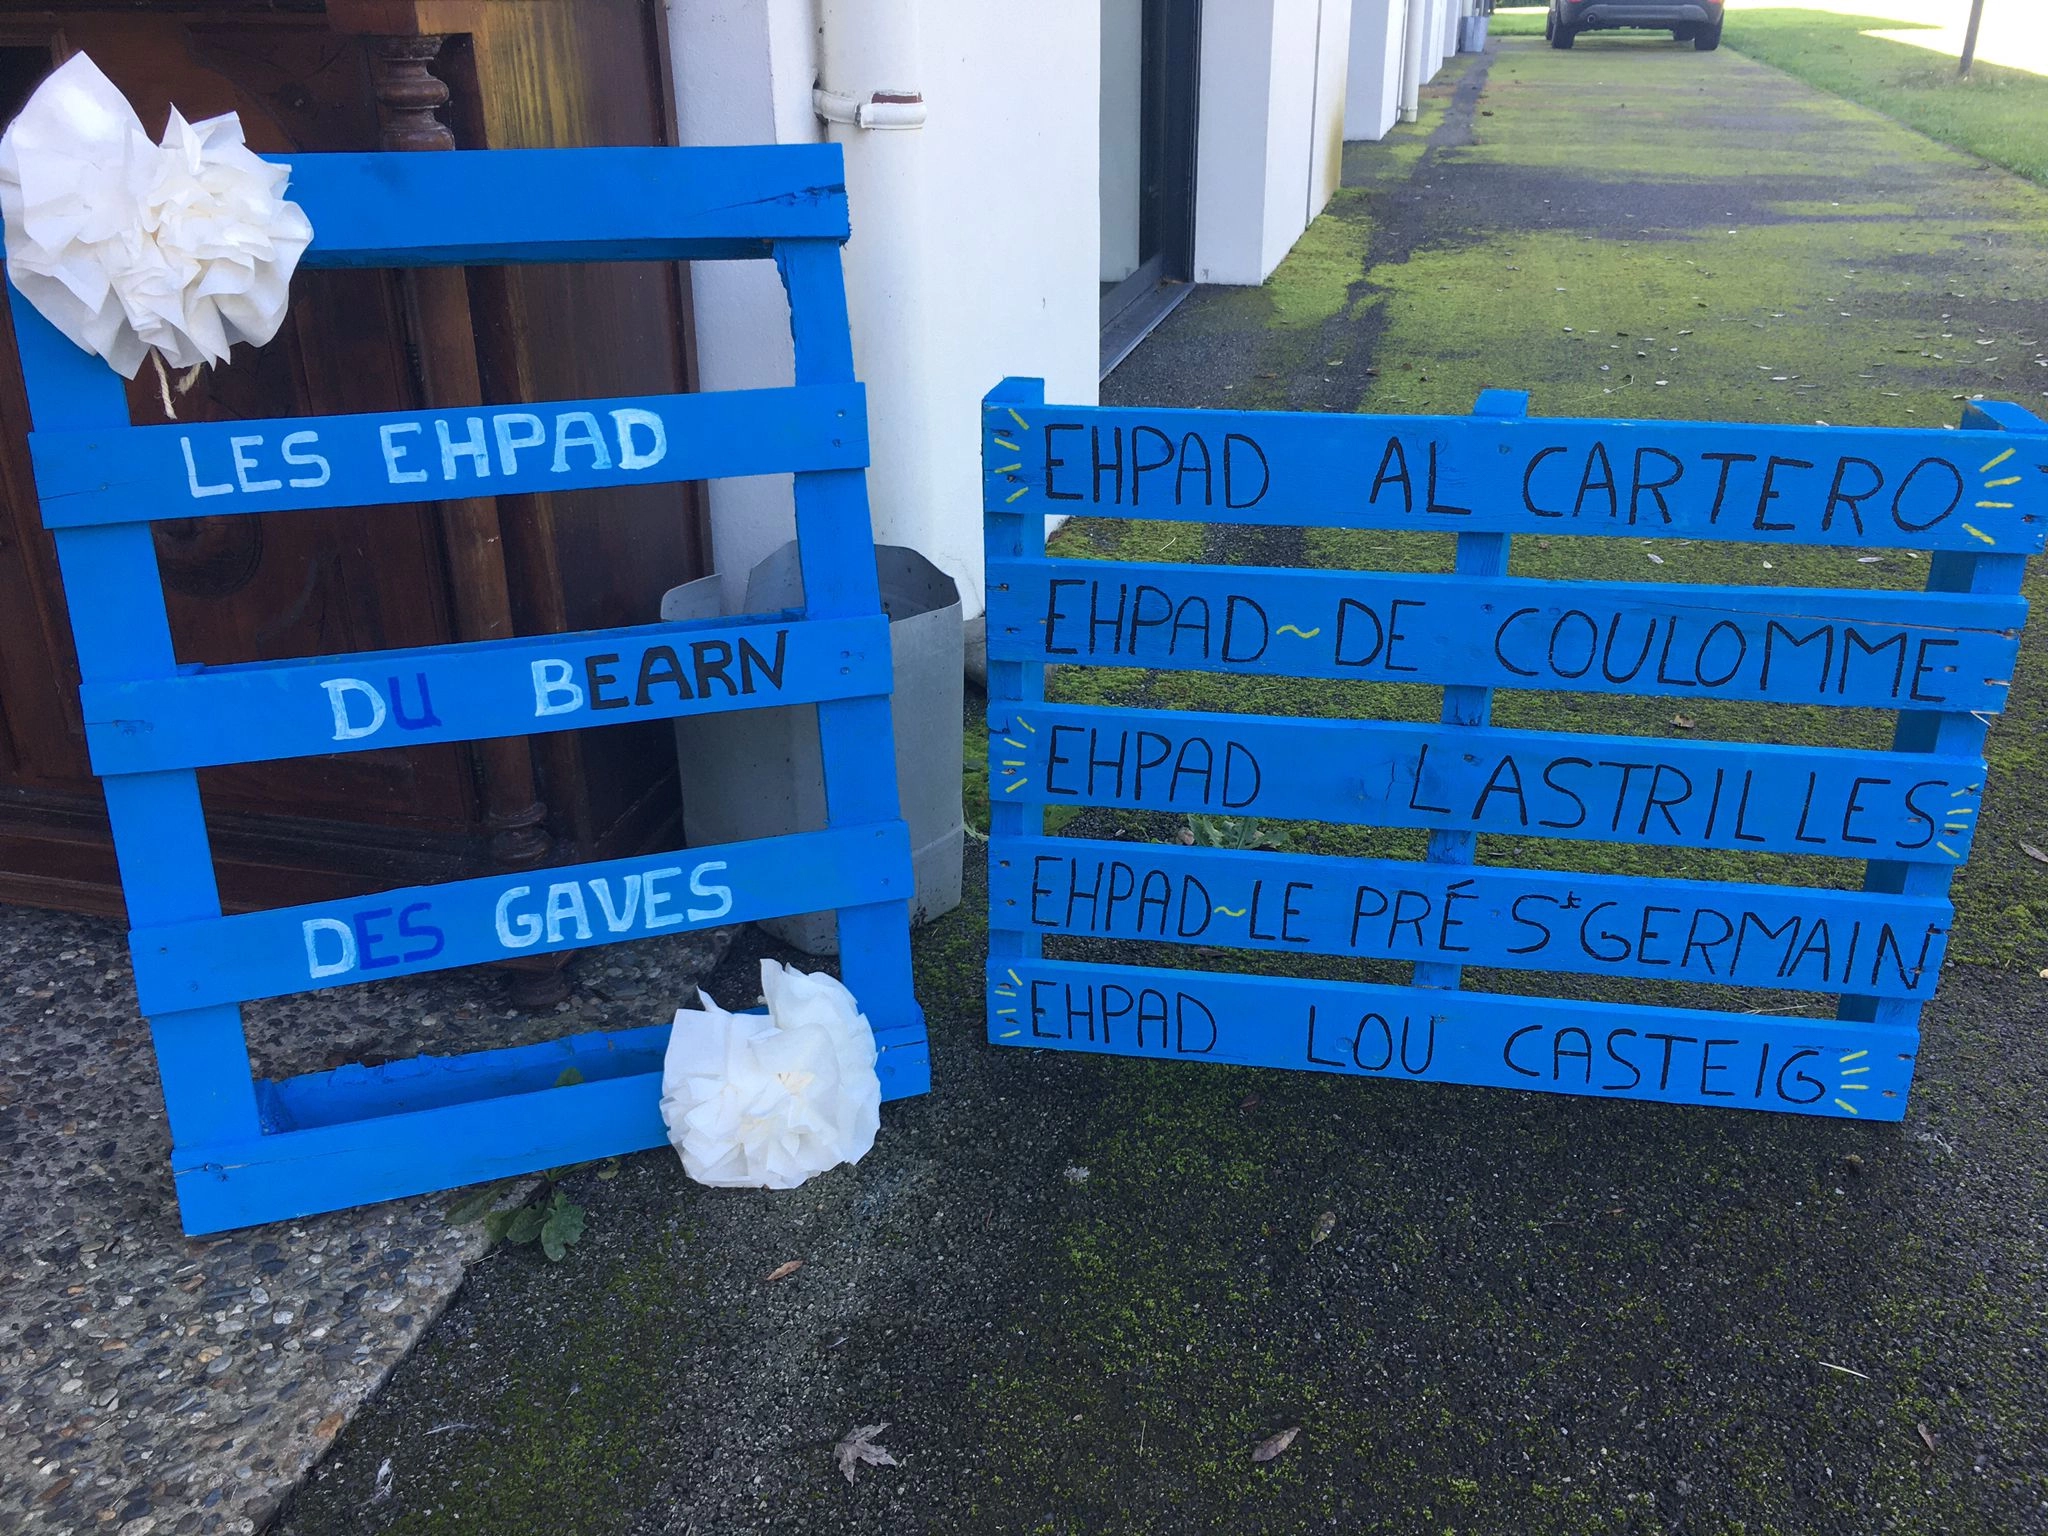 LES EHPAD
DU BEARN
DES GAVES
EHPAD AL CARTERO
EHPAD~DE COULOMME
EHPAD LASTRILLES
EHPAD~LE PRÉ St GERMAIN
EHPAD LOU CASTEIG